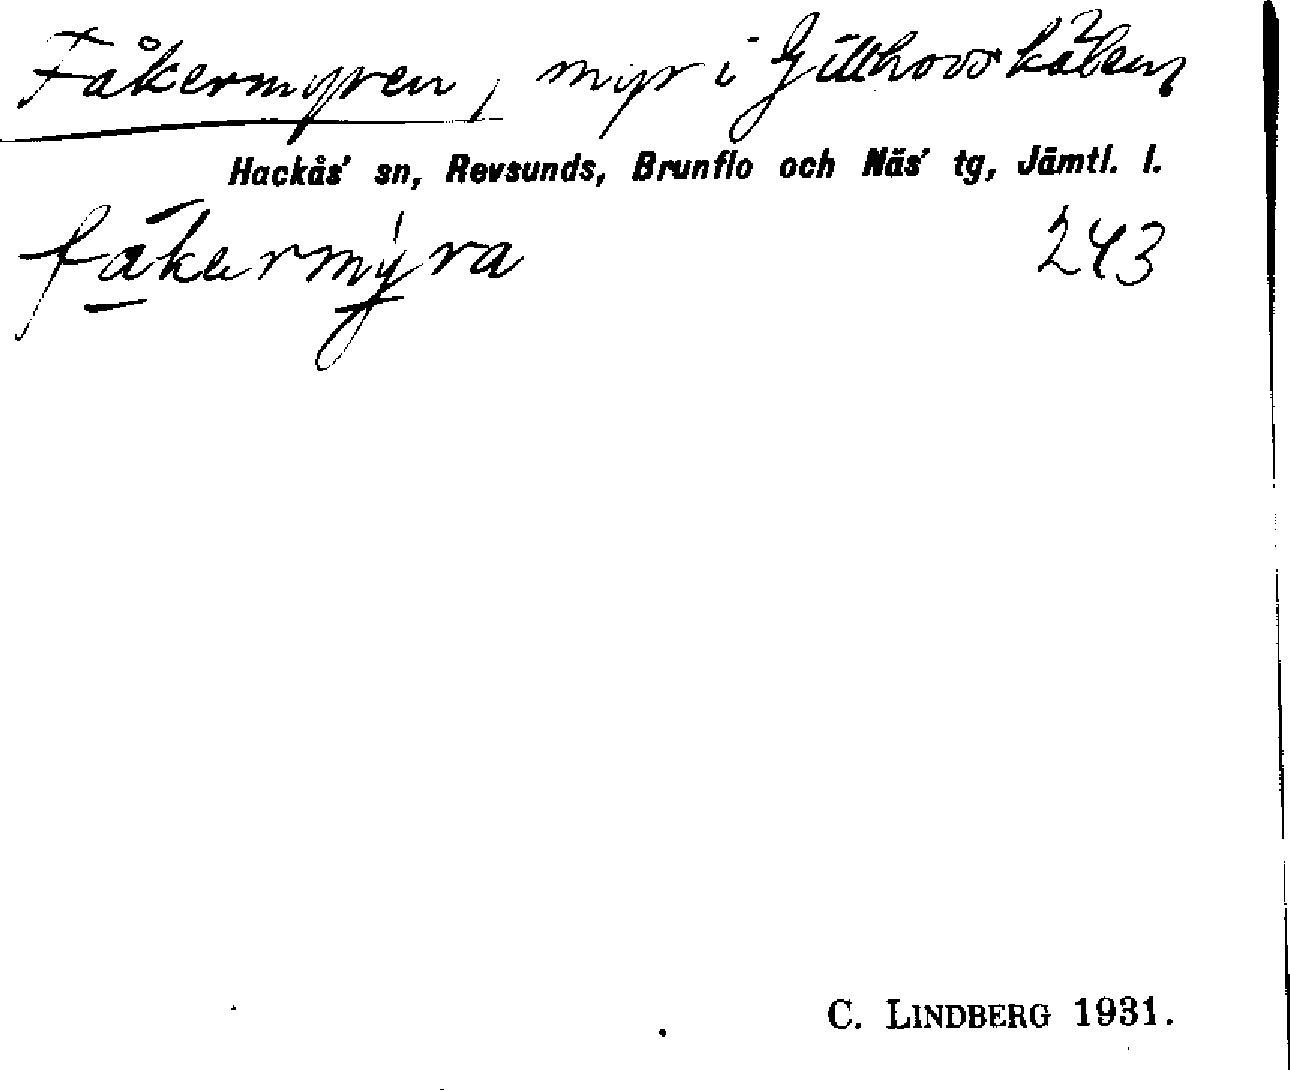 Fåkermyren, myr i Gillhovs
Hackås' sn, Revsunds, Brunflo och Näs' tg, Jämtl. l.
fåkermyra 243
C. LINDBERG 1931.